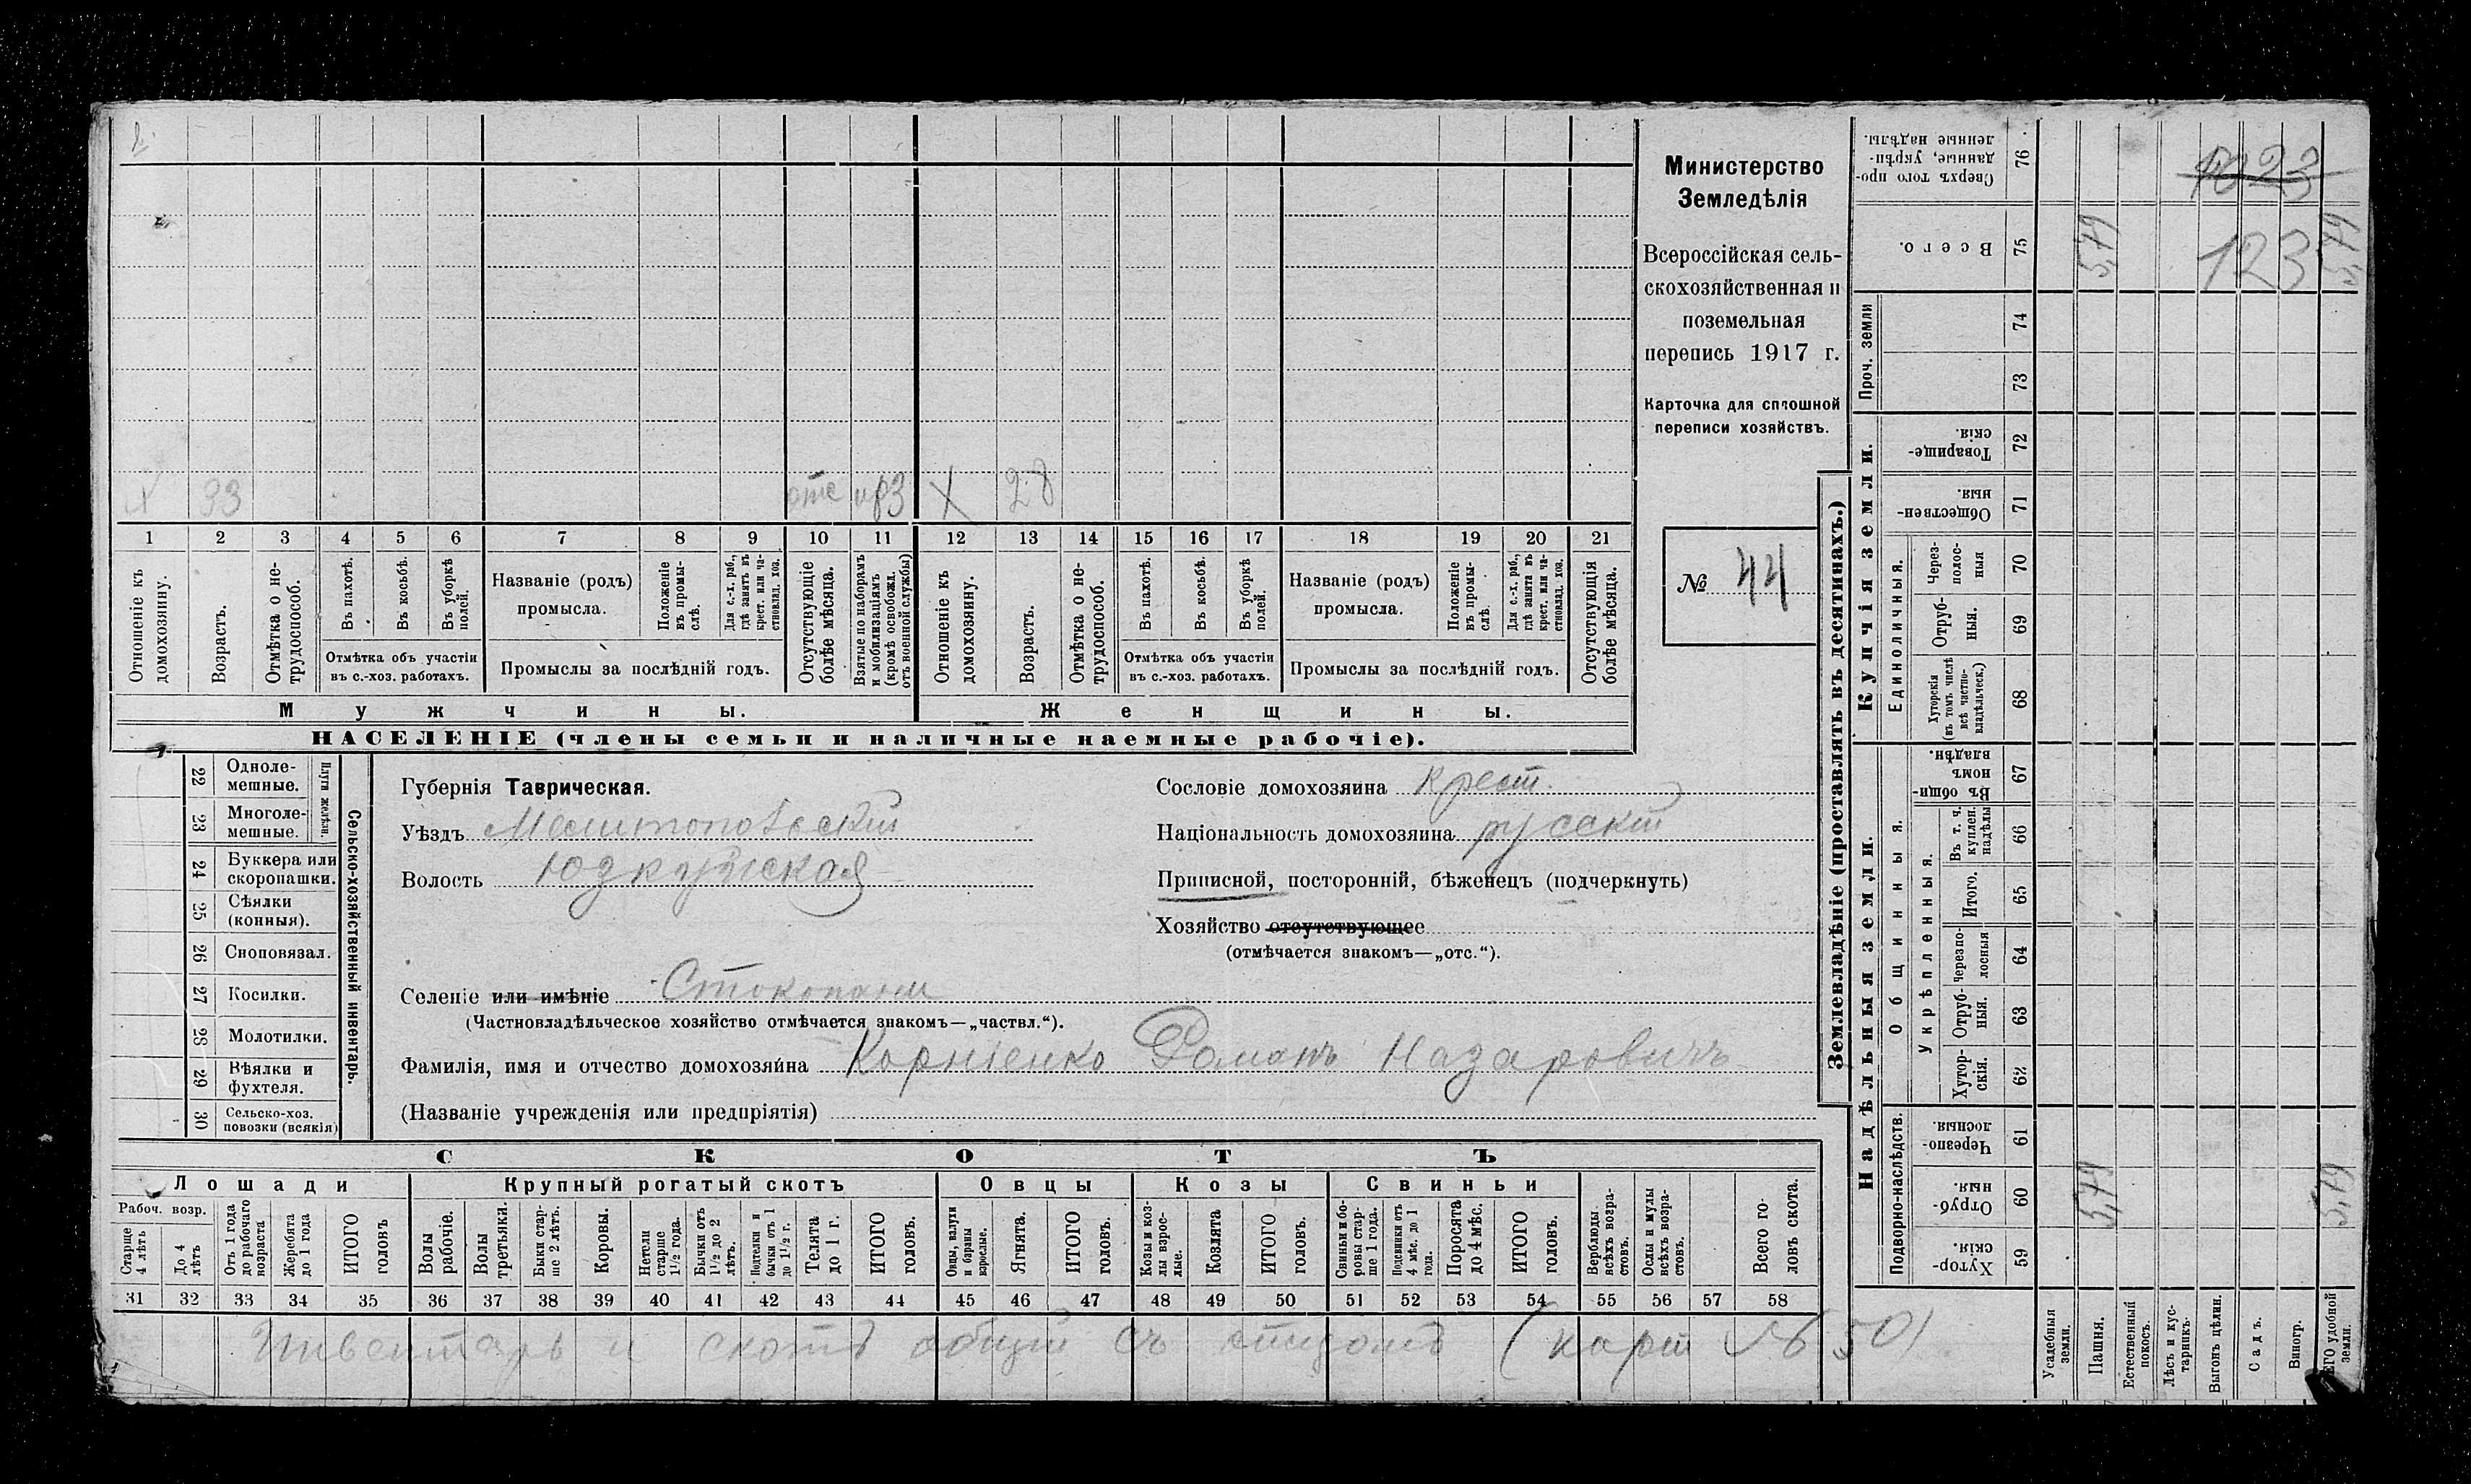 X 33 отс пр3 X 28
1 2 3 4 5 6 7 8 9 10 11 12 13 14 15 16 17 18 19 20 21
Отношеніе къ домохозяину.
Возрастъ.
Отмѣтка о не-трудоспособ.
Въ пахотѣ.
Въ косьбѣ.
Въ уборкѣ полей.
Отмѣтка объ участіи
въ с.-хоз. работахъ.
Названіе (родъ)
промысла.
Положеніе въ промы-слѣ.
Для с.-х. раб., гдѣ занятъ въ крест. или ча-стновлад. хоз.
Промыслы за послѣдній годъ.
Отсутствующіе болѣе мѣсяца.
Взятые по наборамъ и мобилизаціямъ (кромѣ освобожд. отъ военной службы)
Отношеніе къ домохозяину.
Возрастъ.
Отмѣтка о не-трудоспособ.
Въ пахотѣ.
Въ косьбѣ.
Въ уборкѣ полей.
Отмѣтка объ участіи
въ с.-хоз. работахъ.
Названіе (родъ)
промысла.
Положеніе въ промы-слѣ.
Для с.-х. раб., гдѣ занятъ въ крест. или ча-стновлад. хоз.
Промыслы за послѣдній годъ.
Отсутствующія болѣе мѣсяца.
Мужчины.
Женщины.
НАСЕЛЕНІЕ (члены семьи и наличные наемные рабочіе).
Министерство
Земледѣлія
Всероссійская сель-
скохозяйственная и
поземельная
перепись 1917 г.
Карточка для сплошной
переписи хозяйствъ.
№ 44
22 Одноле-
мешные.
23 Многоле-
мешные.
Плуги желѣзн.
24 Буккера или
скоропашки.
25 Сѣялки
(конныя).
26 Сноповязал.
27 Косилки.
28 Молотилки.
29 Вѣялки и
фухтеля.
30 Сельско-хоз.
повозки (всякія)
Сельско-хозяйственный инвентарь.
Губернія Таврическая.
Уѣздъ Мелитопольскій
Волость Юзкуйская
Сословіе домохозяина крест.
Національность домохозяина русскій
Приписной, посторонній, бѣженецъ (подчеркнуть)
Хозяйство отсутствующее
(отмѣчается знакомъ—„отс.“).
Селеніе или имѣніе Стокопани
(Частновладѣльческое хозяйство отмѣчается знакомъ—„частвл.“).
Фамилія, имя и отчество домохозяина Корніенко Романъ Назаровичъ
(Названіе учрежденія или предпріятія)
СКОТЪ
Лошади
Крупный рогатый скотъ
Овцы
Козы
Свиньи
Рабоч. возр.
Старше 4 лѣтъ
До 4 лѣтъ
Отъ 1 года до рабочаго возраста
Жеребята до 1 года
ИТОГО головъ
Волы рабочіе.
Волы третьяки.
Быки стар-ше 2 лѣтъ.
Коровы.
Нетели старше 1½ года.
Бычки отъ 1½ до 2 лѣтъ.
Подтелки и бычки отъ 1 до 1½ г.
Телята до 1 г.
ИТОГО головъ.
Овцы, валухи и бараны взрослые.
Ягнята.
ИТОГО головъ.
Козы и коз-лы взрос-лые.
Козлята
ИТОГО головъ.
Свиньи и бо-ровы стар-ше 1 года.
Подсвинки отъ 4 мѣс. до 1 года.
Поросята до 4 мѣс.
ИТОГО головъ.
Верблюды всѣхъ возра-стовъ.
Ослы и мулы всѣхъ возра-стовъ.
Всего го-ловъ скота.
31 32 33 34 35 36 37 38 39 40 41 42 43 44 45 46 47 48 49 50 51 52 53 54 55 56 57 58
Инвентарь и скотъ общій съ отцомъ (карт №50)
Землевладѣніе (проставлять въ десятинахъ.)
Надѣльныя земли.
Купчія земли.
Проч. земли
Подворно-наслѣдств.
Общинныя.
Укрѣпленныя.
Единоличныя.
Сверхъ того про-данные, укрѣп-ленные надѣлы. 76
Всего. 75 5,79 5,79
1023
123
74
73
Товарище-скія. 72
Обществен-ныя 71
Через-полос-ныя 70
Отруб-ныя. 69
Хуторскія (въ томъ числѣ всѣ частно-владѣльческ.) 68
Въ общи-номъ владѣн. 67
Въ т. ч. куплен. надѣлы 66
Итого. 65
Черезпо-лосныя 64
Отруб-ныя. 63
Хутор-скія. 62
Черезпо-лосныя. 61
Отруб-ныя. 60 5,79 5,79
Хутор-скія. 59
Усадебныя земли.
Пашня.
Естественный покосъ.
Лѣсъ и кус-тарникъ.
Выгонъ цѣлин.
Садъ.
Виногр.
ЕГО удобной земли.